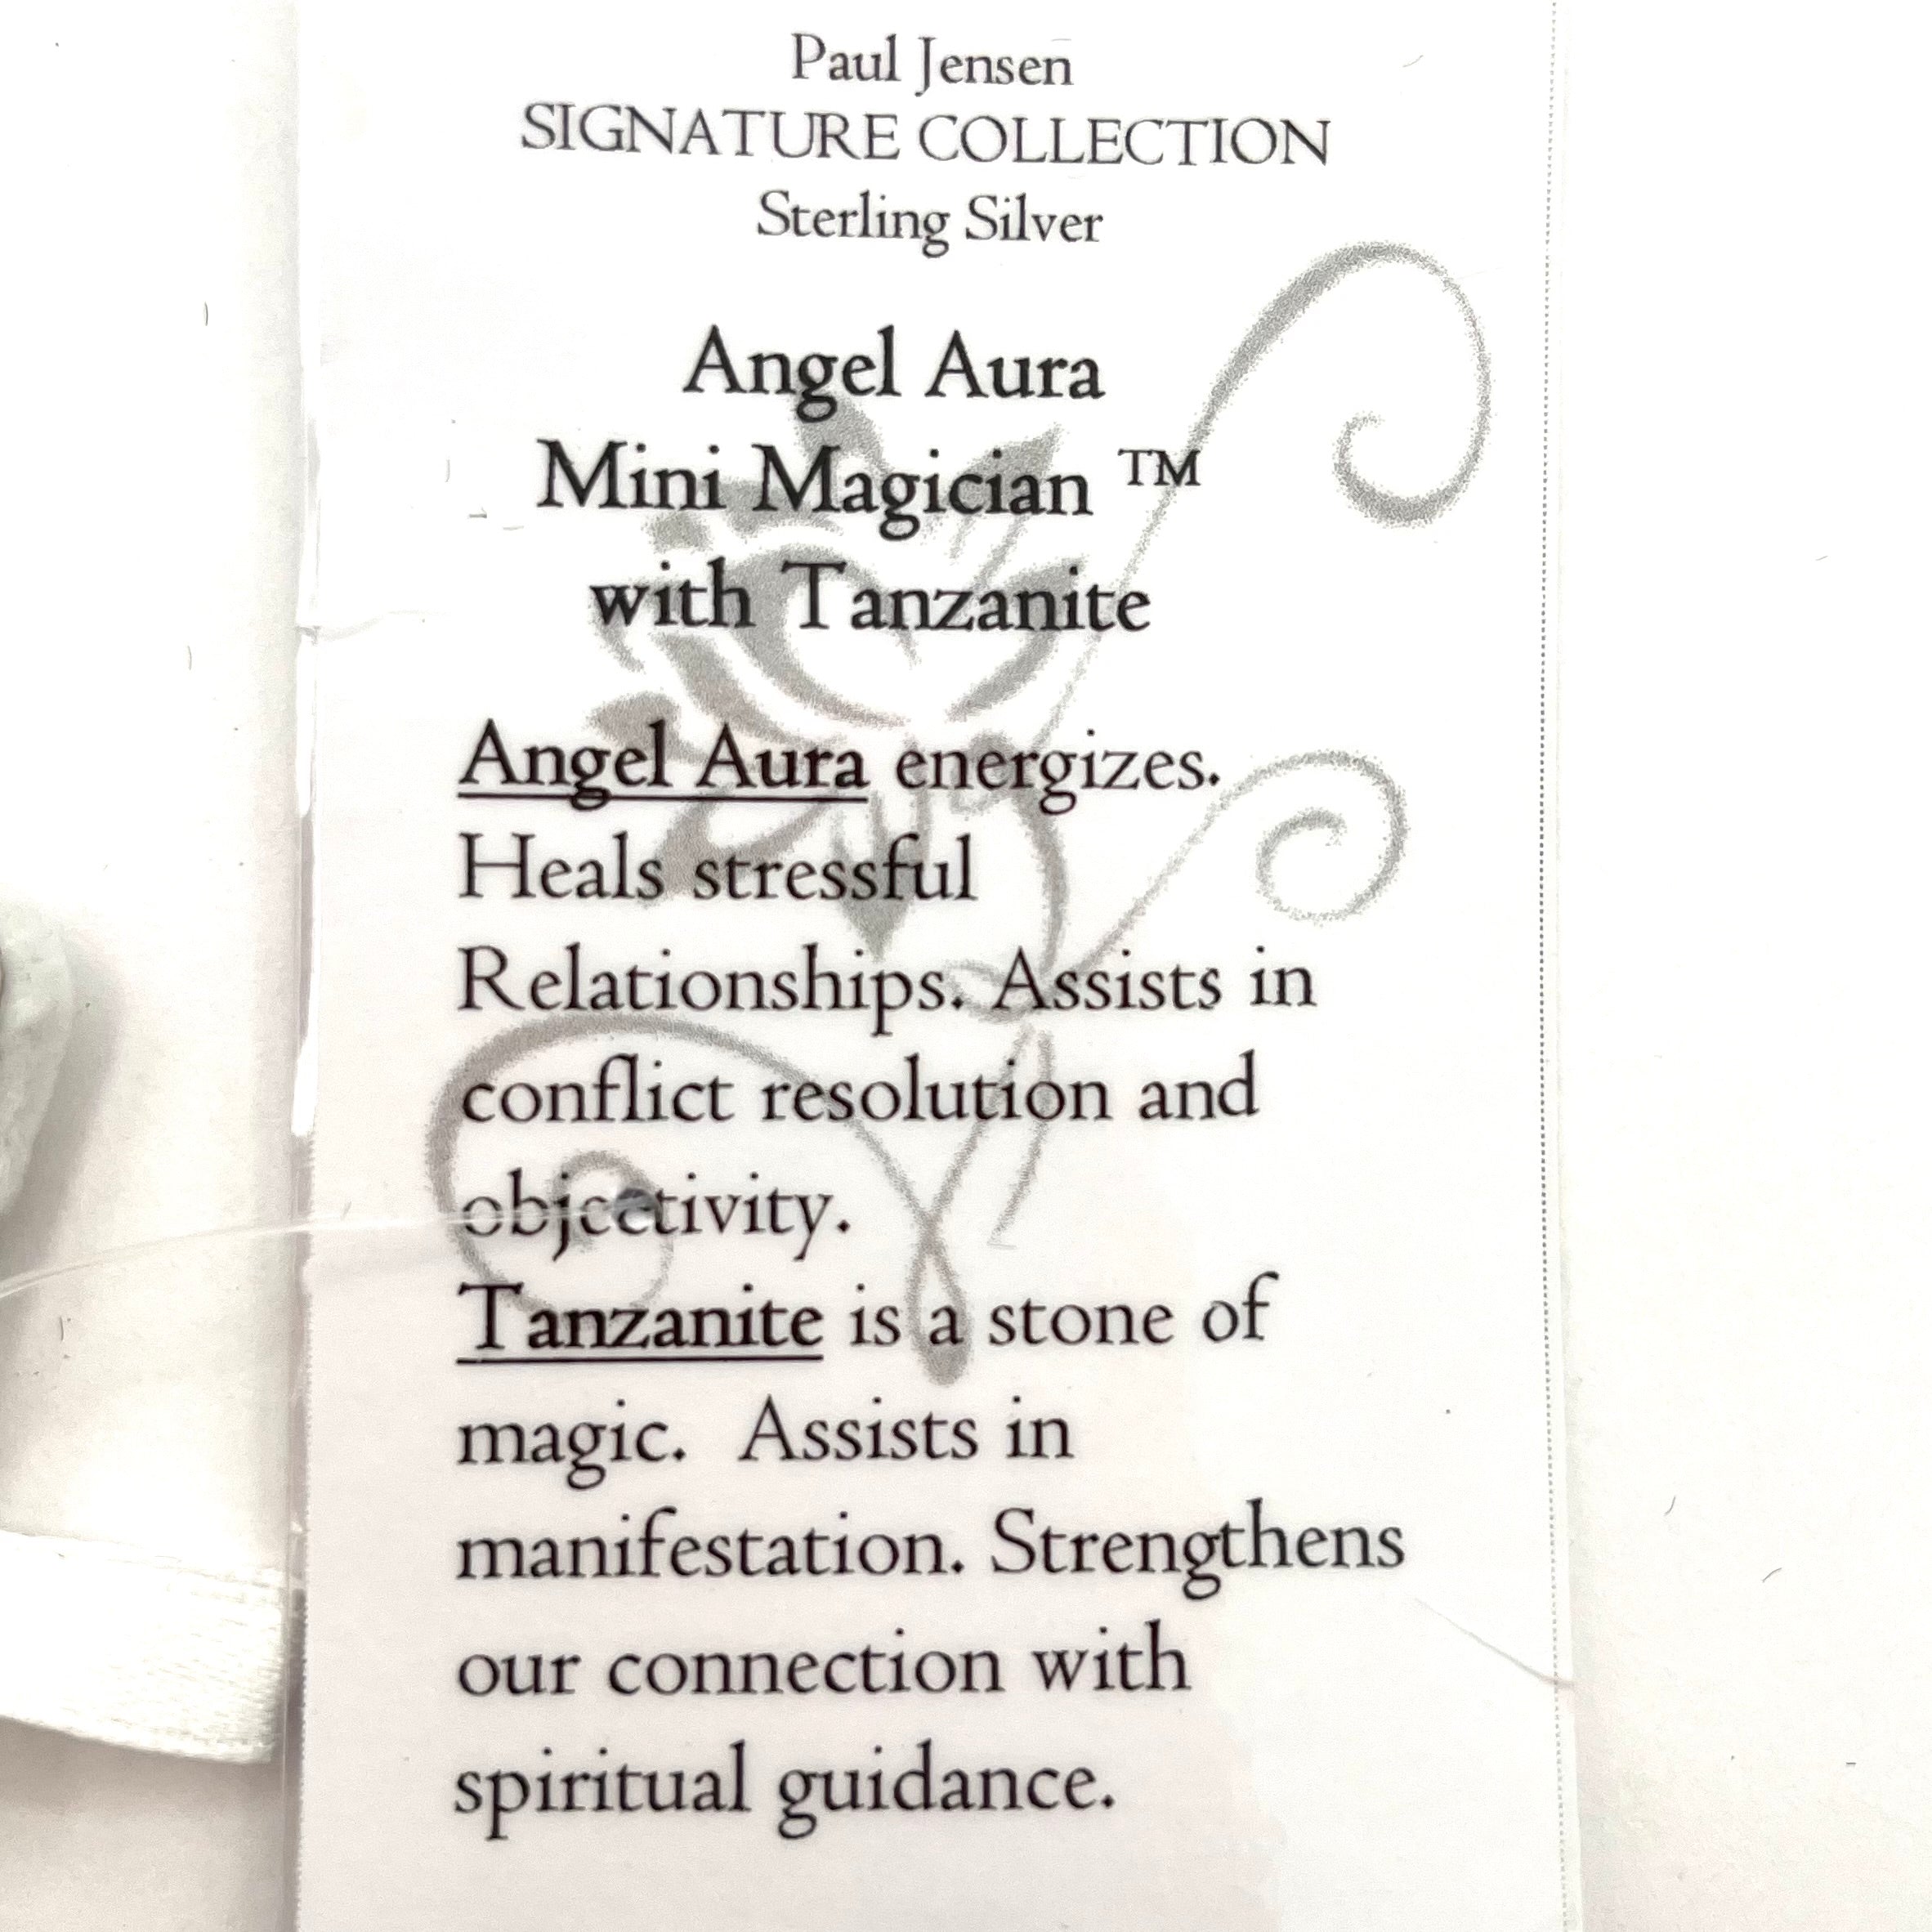 Paul Jensen
SIGNATURE COLLECTION
Sterling Silver
Angel Aura
Mini Magician ™
with Tanzanite
Angel Aura energizes.
Heals stressful
Relationships. Assists in
conflict resolution and
objectivity.
Tanzanite is a stone of
magic. Assists in
manifestation. Strengthens
our connection with
spiritual guidance.